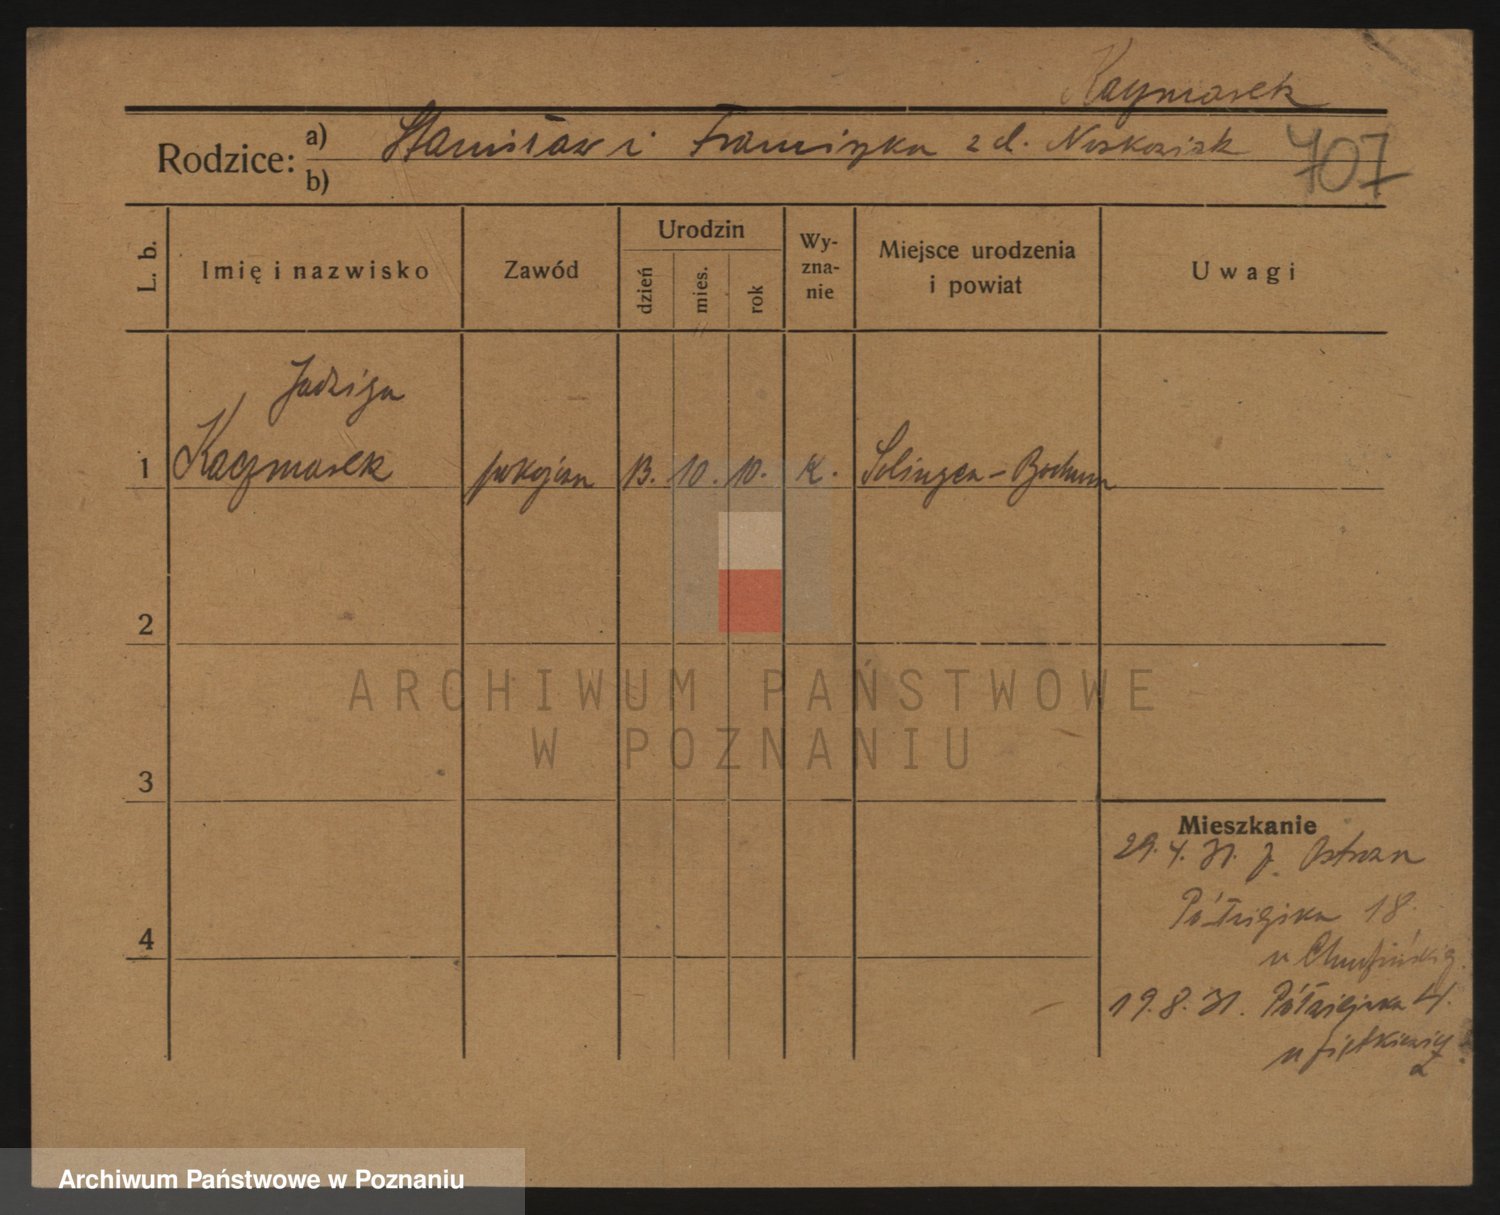 Kaczmarek
Rodzice: a) Stanisław i Franciszka z d. Noskowiak
b)
707
L. b.
Imię i nazwisko
Zawód
Urodzin
dzień
mies.
rok
Wy-
zna-
nie
Miejsce urodzenia
i powiat
Uwagi
Jadwiga
1 Kaczmarek pokojowa 13. 10. 10. K. Solingen - Bochum
2
3
4
Mieszkanie
29. 4. 31. z Ostrowa
Półwiejska 18.
u
19. 8. 31. Półwiejska 4.
u
ARCHIWUM PAŃSTWOWE
W POZNANIU
Archiwum Państwowe w Poznaniu